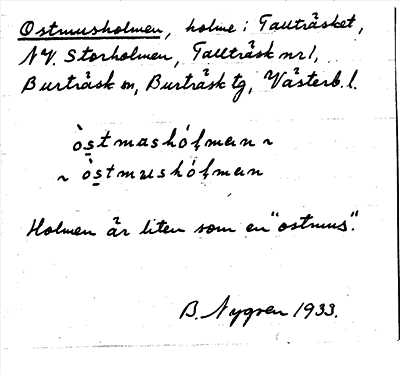 Ostmusholmen, holme i Tallträsket,
NV. Storholmen, Tallträsk nr 1,
Burträsk sn, Burträsk tg, Västerb. l.
òstmashólman ~
~ òstmushólman
Holmen är liten som en "ostmus".
B. Nygren 1933.